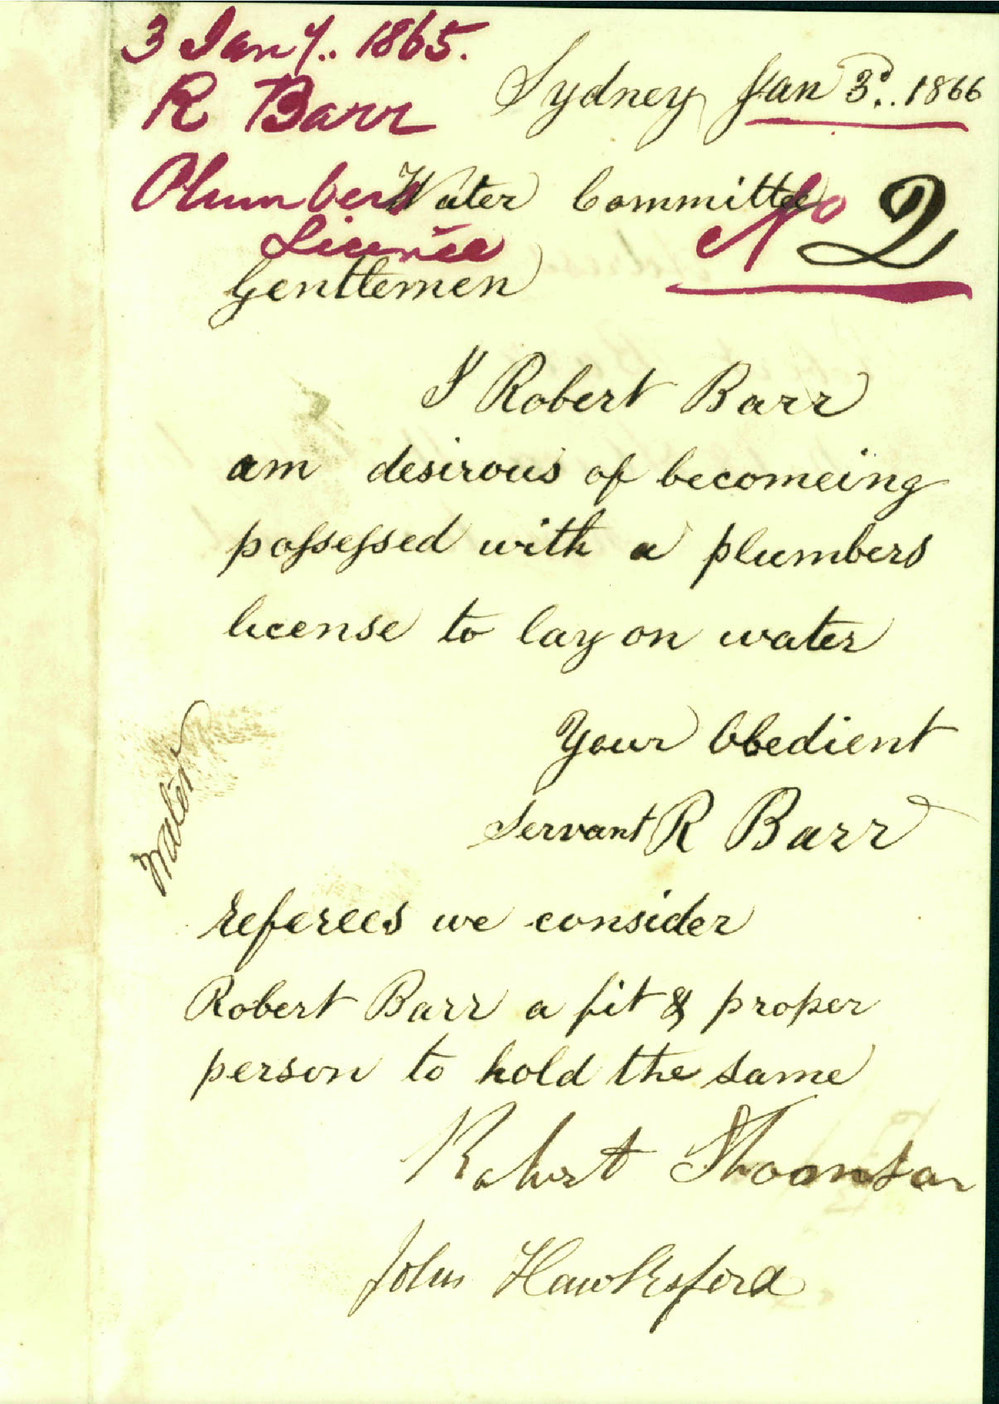 3 Jany.. 1865.
R Barr
Plumbers
License
Sydney Jan 3d.. 1866
Water Committee
No 2
Gentlemen
I Robert Barr
am desirous of becomeing
possessed with a plumbers
license to lay on water
Your Obedient
servant R Barr
Water
referees we consider
Robert Barr a fit & proper
person to hold the same
Robert Thomson
John Hawksford